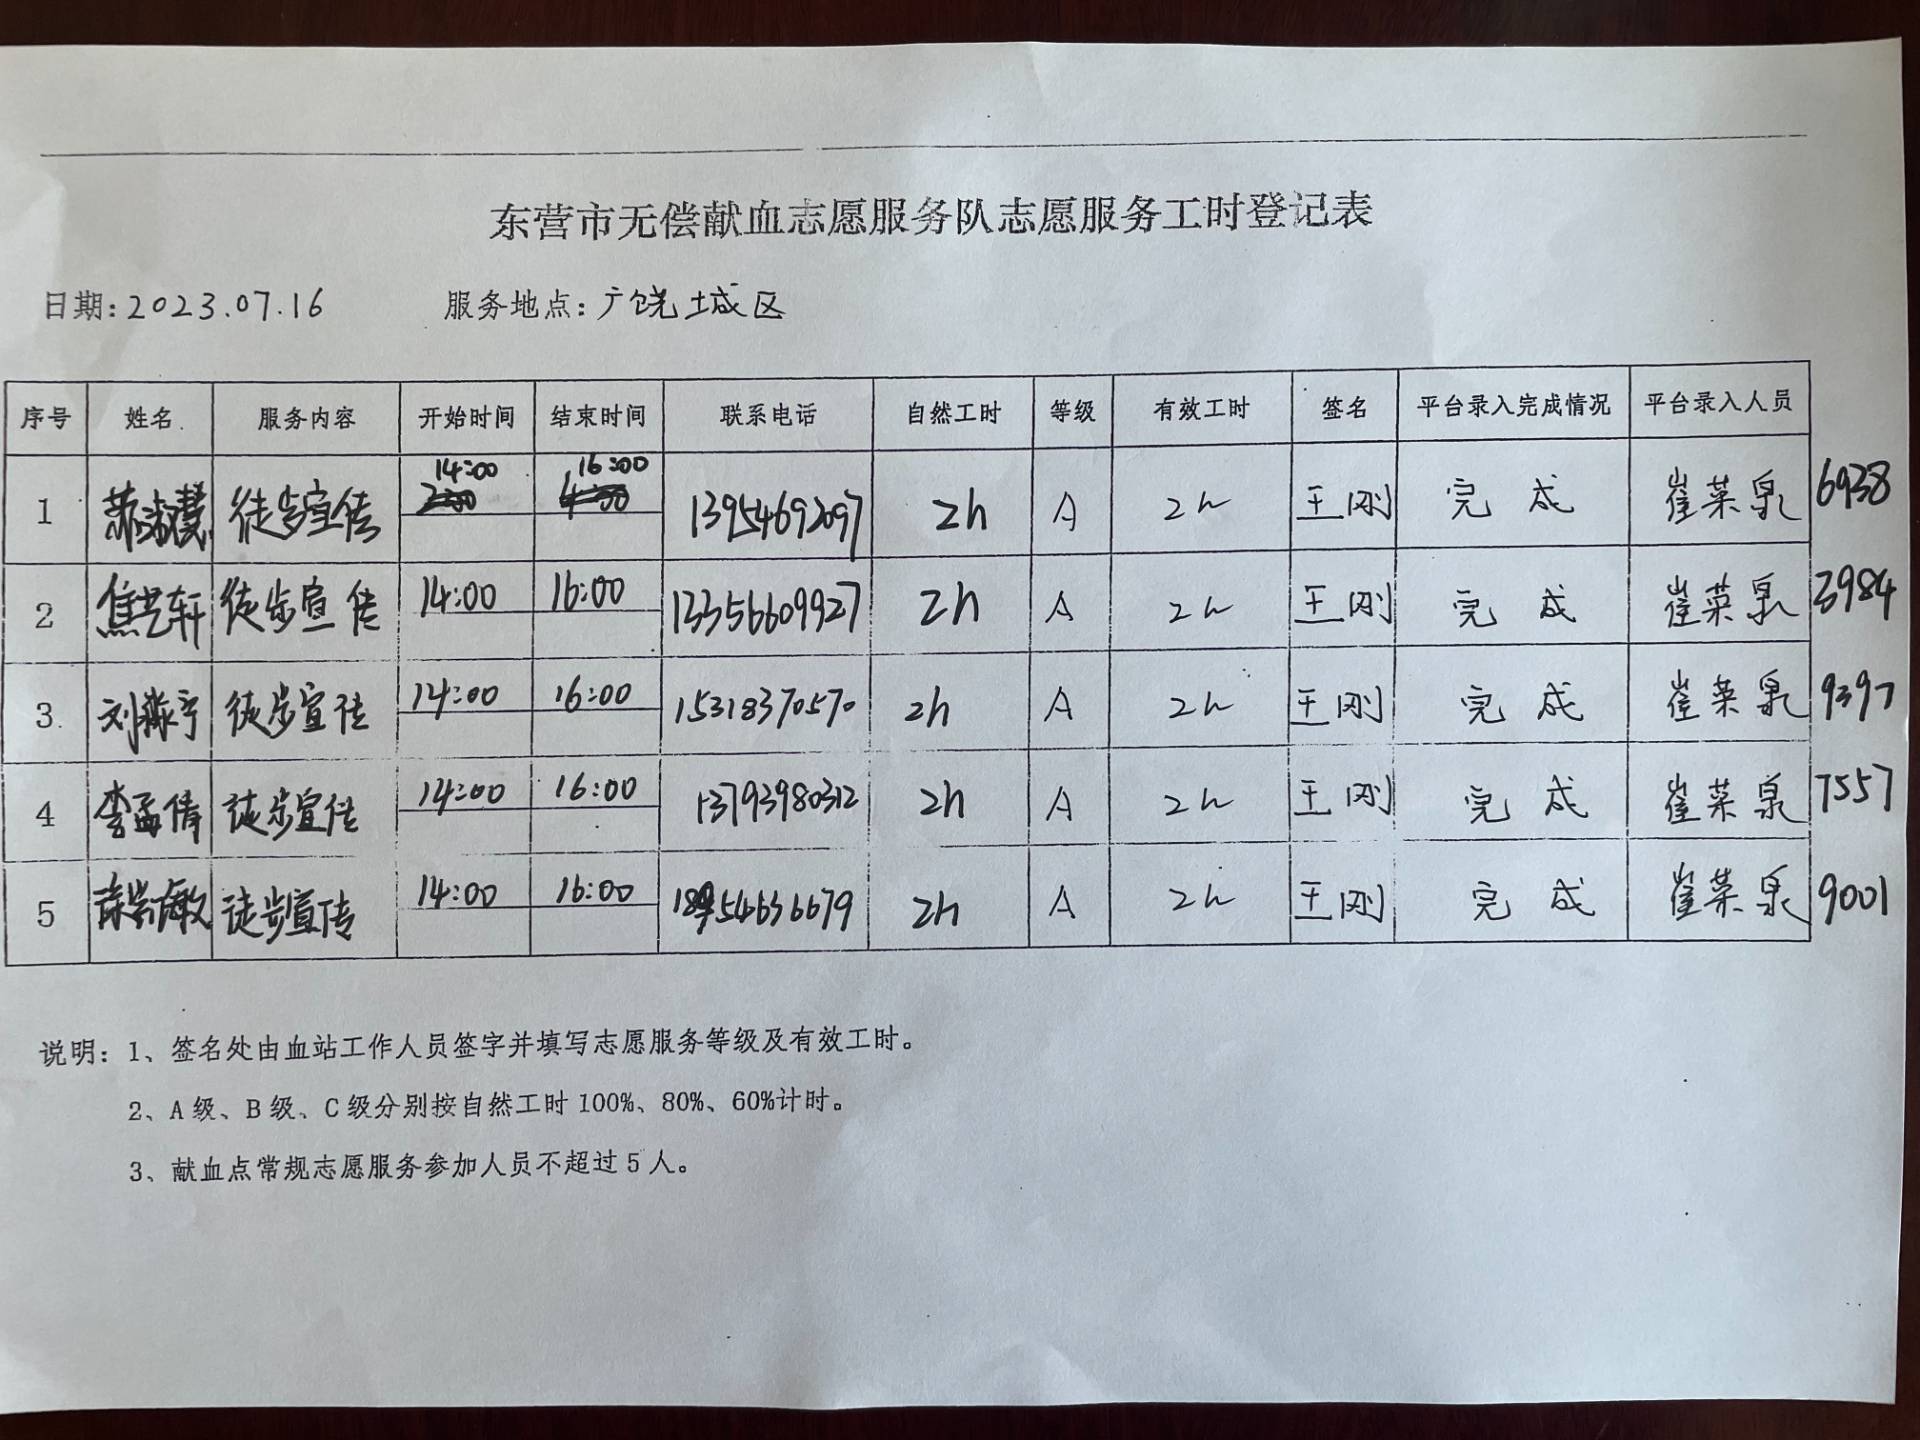 东营市无偿献血志愿服务队志愿服务工时登记表
日期:2023.07.16 服务地点:广饶城区
序号 姓名 服务内容 开始时间 结束时间 联系电话 自然工时 等级 有效工时 签名 平台录入完成情况 平台录入人员
1 徒步宣传 14:00 16:00 13954692097 2h A 2h 王刚 完成 崔菜泉 6938
2 焦艺轩 徒步宣传 14:00 16:00 13356609927 2h A 2h 王刚 完成 崔菜泉 3984
3 刘淼宁 徒步宣传 14:00 16:00 15318370570 2h A 2h 王刚 完成 崔菜泉 9397
4 李孟倩 徒步宣传 14:00 16:00 13793980312 2h A 2h 王刚 完成 崔菜泉 7557
5 徒步宣传 14:00 16:00 2h A 2h 王刚 完成 崔菜泉 9001
说明:1、签名处由血站工作人员签字并填写志愿服务等级及有效工时。
2、A级、B级、C级分别按自然工时100%、80%、60%计时。
3、献血点常规志愿服务参加人员不超过5人。